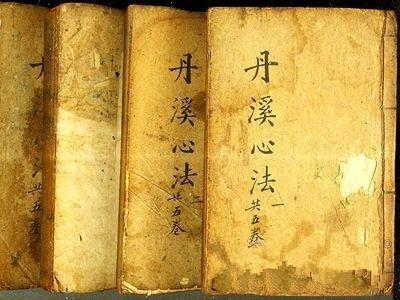 丹溪心法一
共五卷
丹溪心法二
共五卷
丹溪心法
共五